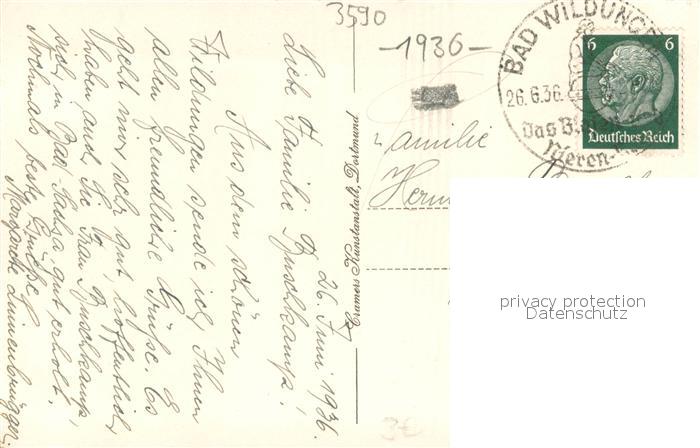 3590
-1936-
BAD WILDUNGEN
26.6.36.
Das
Nieren-
6 6
Deutsches Reich
Familie
Herm
privacy protection
Datenschutz
Cramers Kunstanstalt, Dortmund
26. Juni 1936.
Liebe Familie Buschkamp!
Aus dem schönen
Wildungen sende ich Ihnen
allen freundliche Grüße. Es
geht mir sehr gut, hoffentlich
haben auch Sie Frau Buschkamp,
sich in Bad Sachsa gut erholt.
Nochmals beste Grüße
Margarete Linnenbrügger.
3€